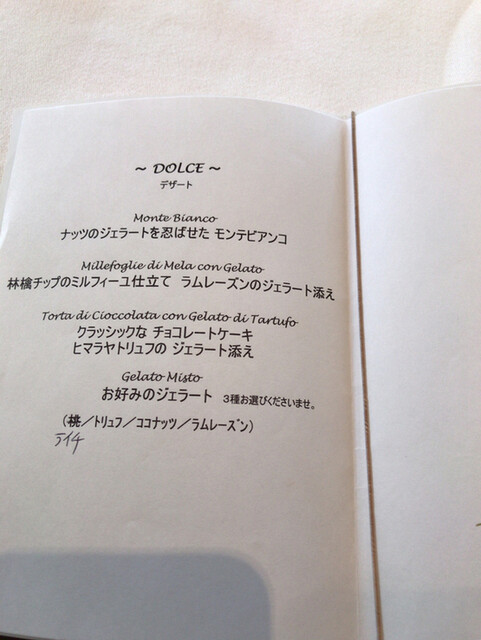 ~ DOLCE ~
デザート
Monte Bianco
ナッツのジェラートを忍ばせた モンテビアンコ
Millefoglie di Mela con Gelato
林檎チップのミルフィーユ仕立て ラムレーズンのジェラート添え
Torta di Cioccolata con Gelato di Tartufo
クラッシックな チョコレートケーキ
ヒマラヤトリュフの ジェラート添え
Gelato Misto
お好みのジェラート 3種お選びくださいませ。
(桃/トリュフ/ココナッツ/ラムレーズン)
ライチ